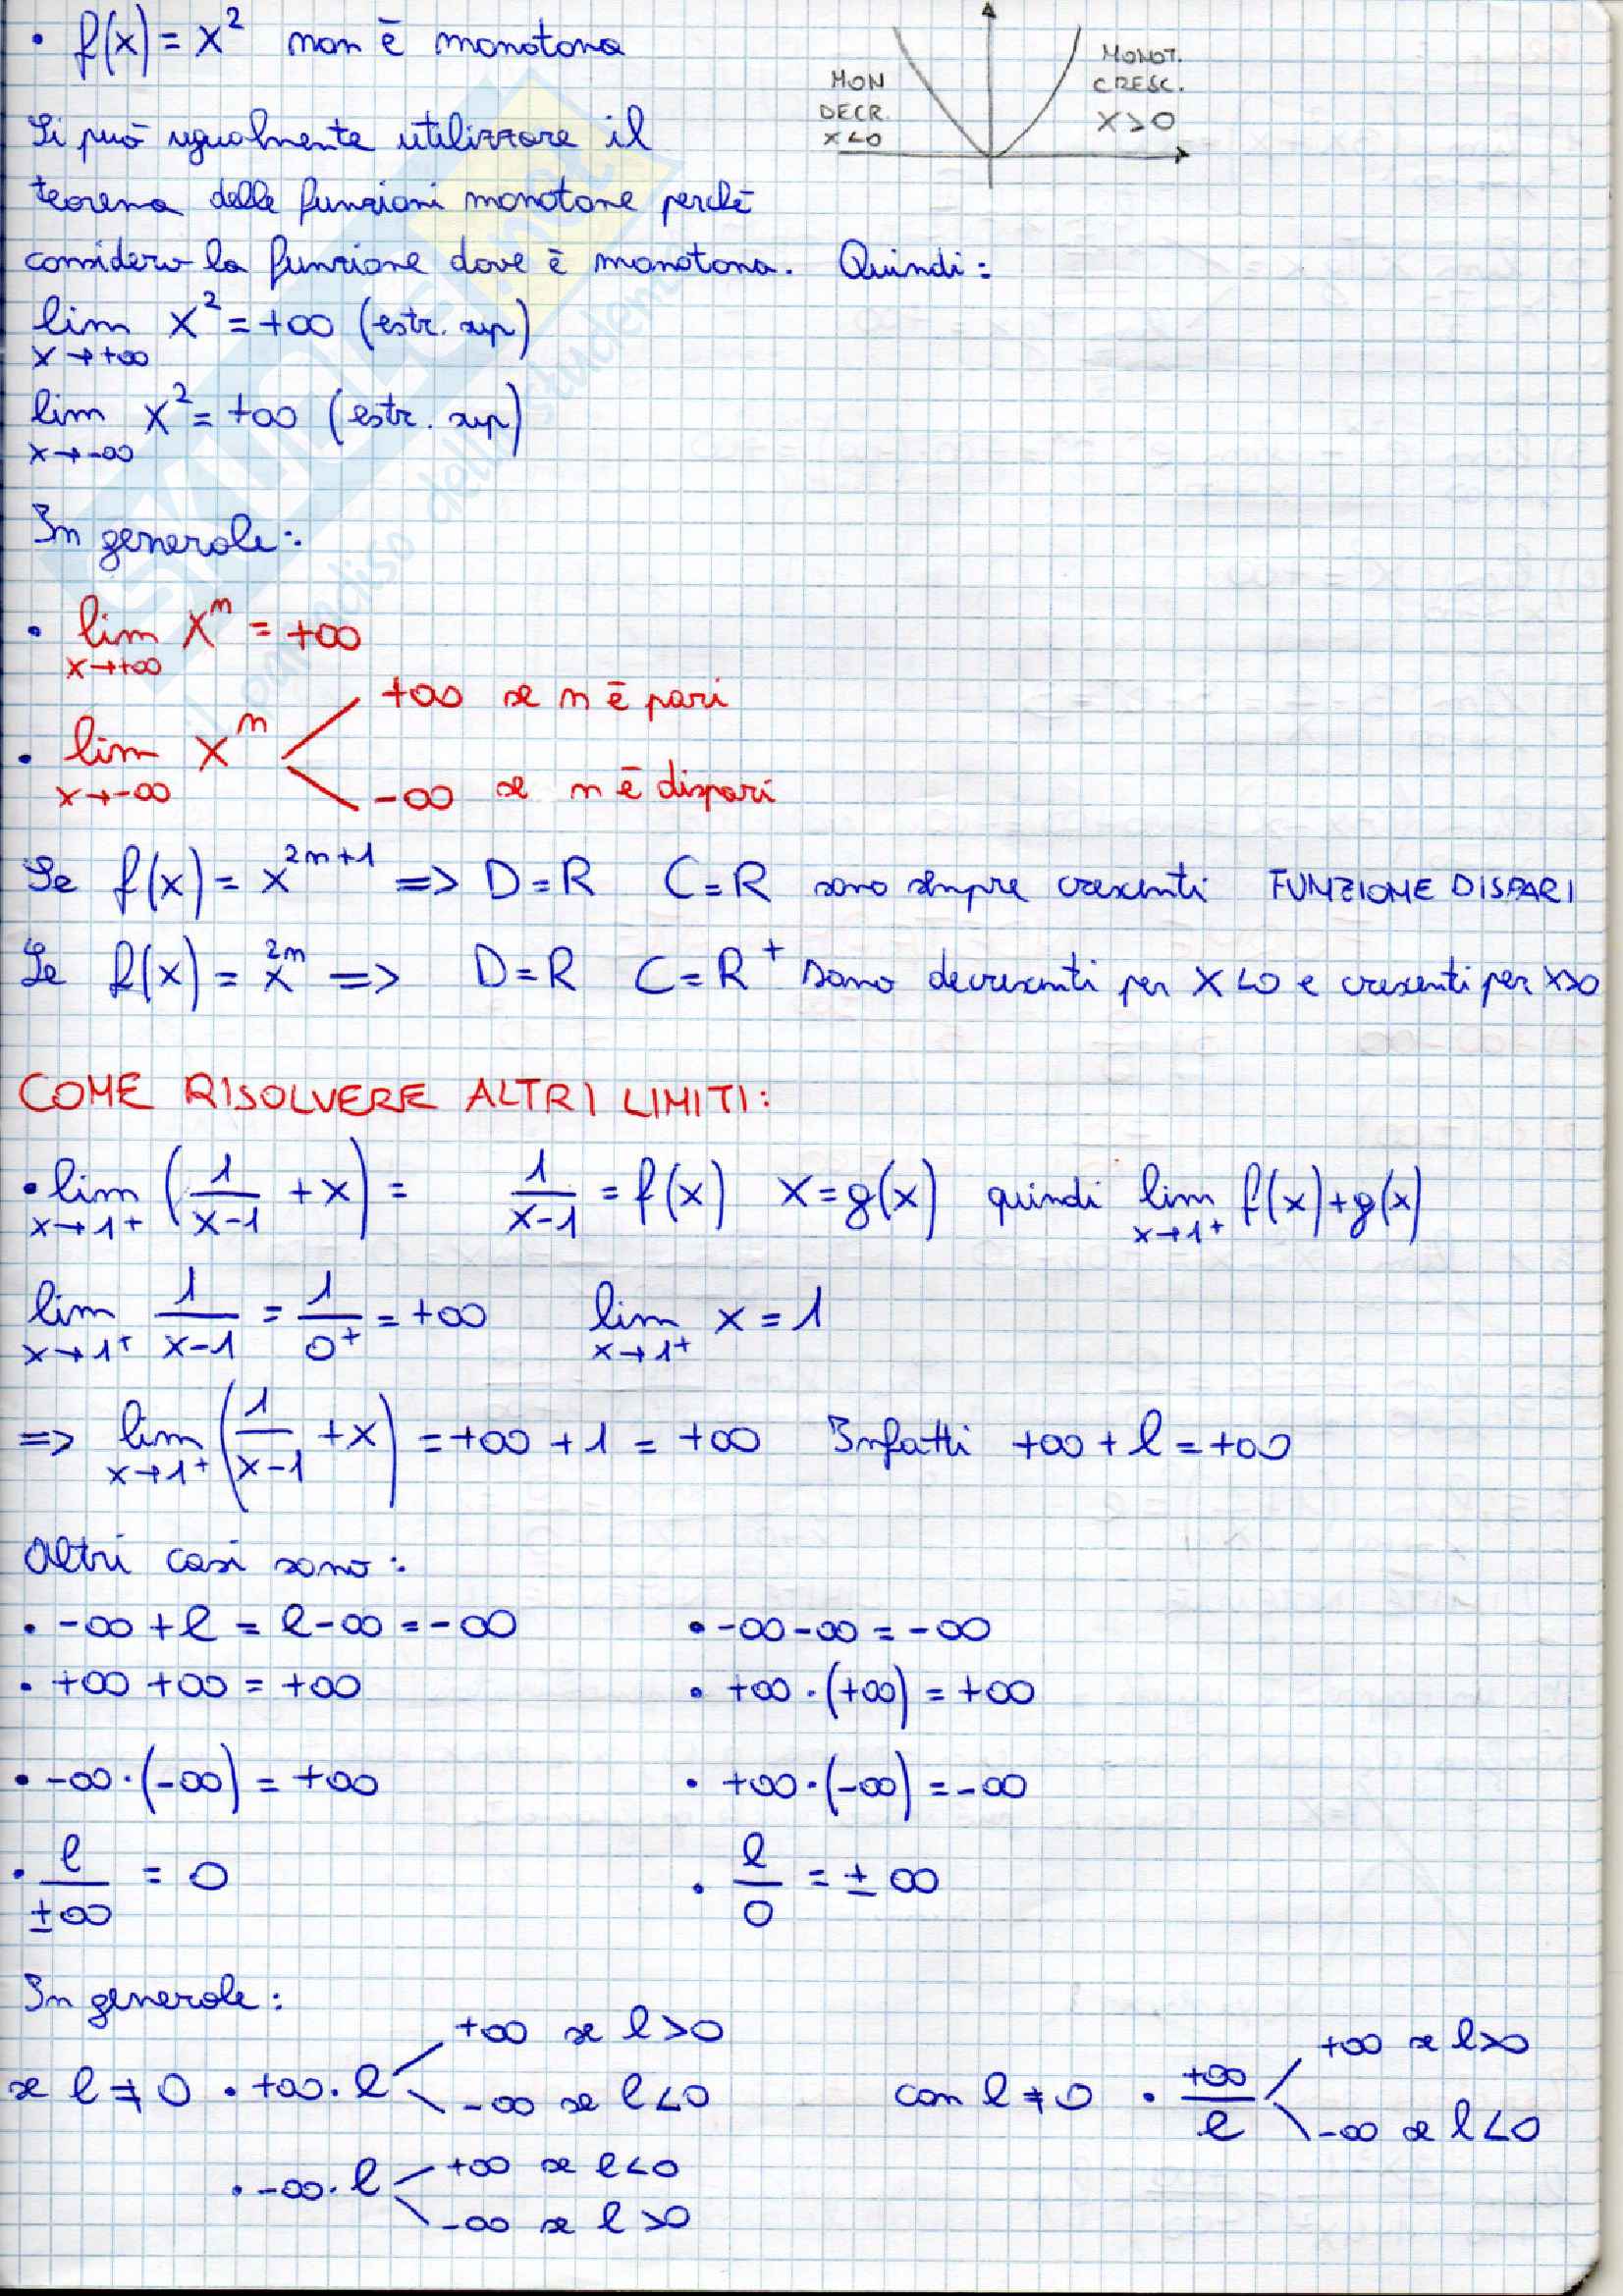 • f(x) = x² non è monotona
MON DECR. x<0
MONOT. CRESC. x>0
Si può ugualmente utilizzare il
teorema delle funzioni monotone perchè
considero la funzione dove è monotona. Quindi:
lim x→+∞ x² = +∞ (estr. sup)
lim x→-∞ x² = +∞ (estr. sup)
In generale:
• lim x→+∞ xⁿ = +∞
• lim x→-∞ xⁿ
+∞ se n è pari
-∞ se n è dispari
Se f(x) = x^{2n+1} => D=R C=R sono sempre crescenti FUNZIONE DISPARI
Se f(x) = x^{2n} => D=R C=R⁺ sono decrescenti per x<0 e crescenti per x>0
COME RISOLVERE ALTRI LIMITI:
• lim x→1⁺ (1/(x-1) + x) = 1/(x-1) = f(x) x = g(x) quindi lim x→1⁺ f(x)+g(x)
lim x→1⁺ 1/(x-1) = 1/0⁺ = +∞ lim x→1⁺ x = 1
=> lim x→1⁺ (1/(x-1) + x) = +∞ + 1 = +∞ Infatti +∞ + l = +∞
Altri casi sono:
• -∞ + l = l - ∞ = -∞ • -∞ - ∞ = -∞
• +∞ + ∞ = +∞ • +∞ · (+∞) = +∞
• -∞ · (-∞) = +∞ • +∞ · (-∞) = -∞
• l/±∞ = 0 • l/0 = ±∞
In generale:
se l ≠ 0 • +∞ · l
+∞ se l>0
-∞ se l<0
con l ≠ 0 • +∞/l
+∞ se l>0
-∞ se l<0
• -∞ · l
+∞ se l<0
-∞ se l>0
SKUOLA.net
il paradiso dello studente